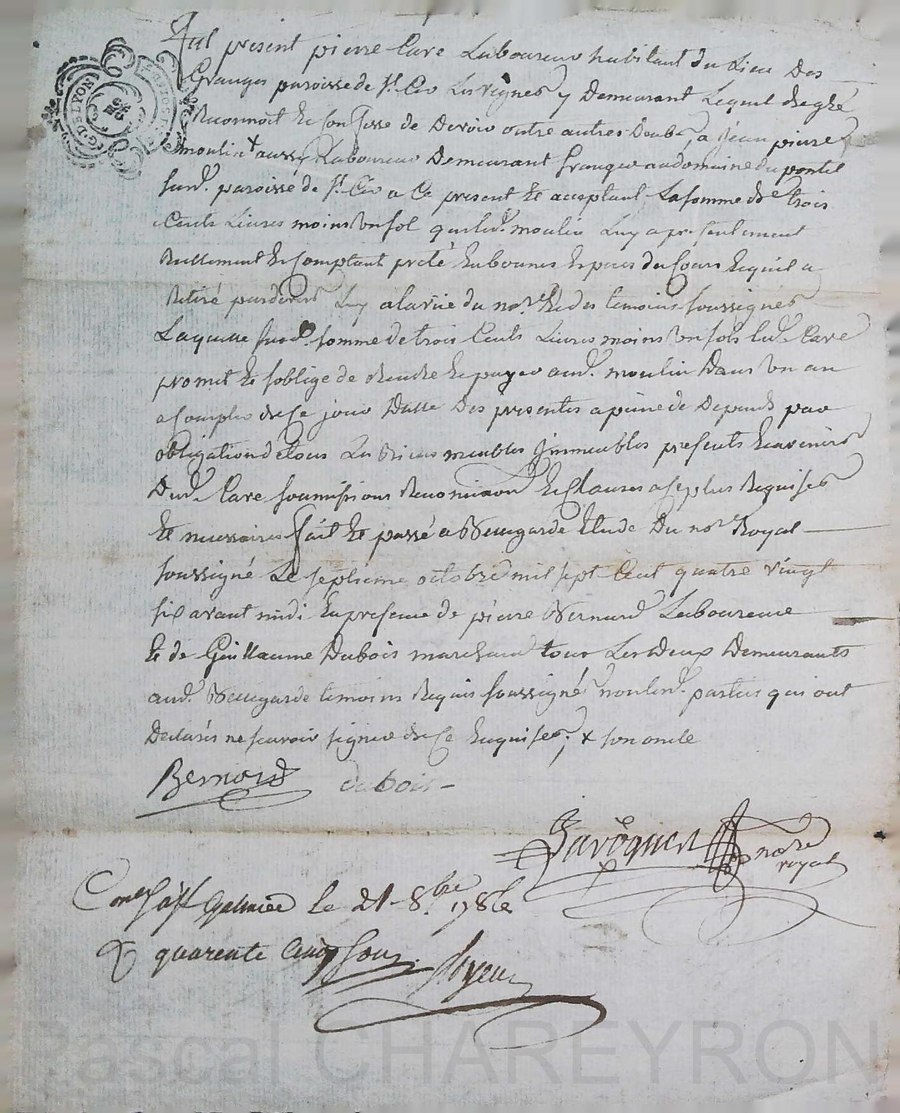 Fut present pierre Cave Laboureur habitant du Lieu Des
Granges paroisse de st. Cir Les Vignes y Demeurant Lequel de gré
Reconnoit Et Confesse de Devoir outre autres Deub, a jean pierre
moulin + aussy Laboureur Demeurant Granger au domaine du pontel
susd. paroisse de st. Cir a Ce present Et acceptant La somme de trois
Cents Livres moins un sol que led. moulin Luy a presentement
Reellement Et Comptant preté En bonnes Especes du Cours Lequel a
Retiré pardevers Luy a la vüe du nore. Et des temoins soussignés
Laquelle susd. somme de trois Cents Livres moins un sols led. Cave
promet Et s'oblige de Rendre Et payer aud. moulin Dans un an
a Compter de Ce jour Datte Des presentes a peine de Depends par
obligation de tous Les Biens meubles Immeubles presents Et avenirs
Dud. Cave soumissions Renonciation Et Clauses a Ce plus Requises
Et necessaires fait Et passé a Bellegarde Etude Du nore Royal
soussigné Le septieme octobre mil sept Cent quatre vingt
six avant midi En presence de pierre Bernard Laboureur
Et de Guillaume Dubois marchand tous Les Deux Demeurants
aud. Bellegarde temoins Requis soussignés non lesd. parties qui ont
Declarés ne scavoir signer de Ce Enquises, + son oncle
Bernard dubois
nore
royal
Con. a st Galmier le 21 8.bre 1786
R quarente Cinq sous
Pascal CHAREYRON